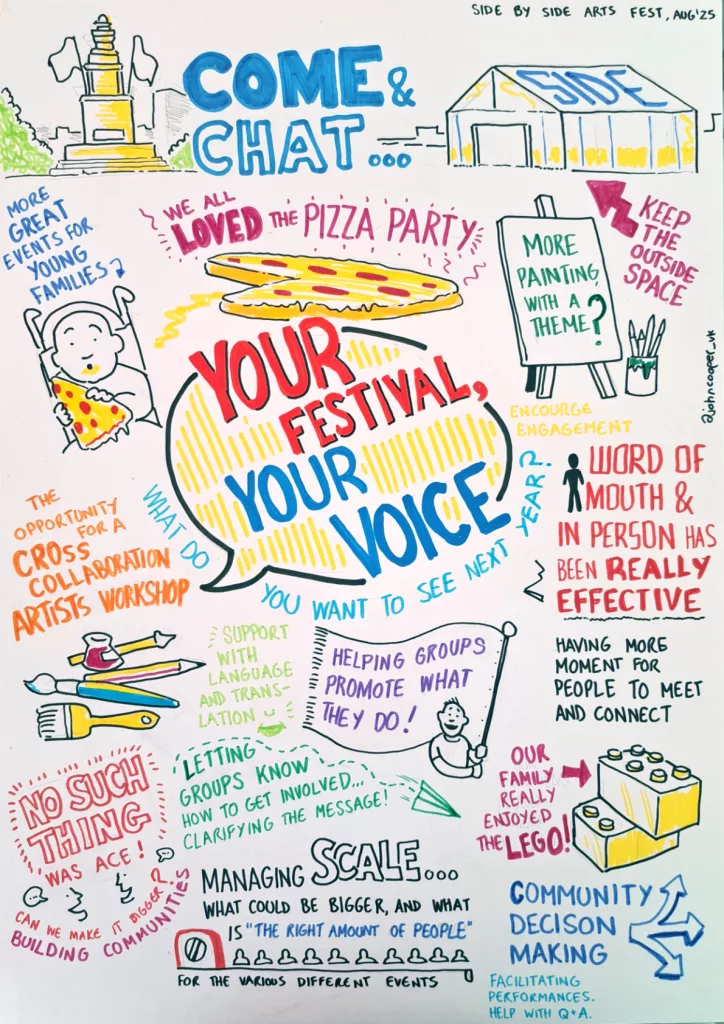 SIDE BY SIDE ARTS FEST, AUG'25
COME &
CHAT...
SIDE
MORE
GREAT
EVENTS FOR
YOUNG
FAMILIES
WE ALL
LOVED THE PIZZA PARTY
MORE
PAINTING,
WITH A
THEME?
KEEP
THE
OUTSIDE
SPACE
@johncooper_uk
YOUR
FESTIVAL,
YOUR
VOICE
WHAT DO YOU WANT TO SEE NEXT YEAR?
ENCOURGE
ENGAGEMENT
WORD OF
MOUTH &
IN PERSON HAS
BEEN REALLY
EFFECTIVE
THE
OPPORTUNITY
FOR A
CROSS
COLLABORATION
ARTISTS WORKSHOP
SUPPORT
WITH
LANGUAGE
AND TRANS-
LATION
HELPING GROUPS
PROMOTE WHAT
THEY DO!
HAVING MORE
MOMENT FOR
PEOPLE TO MEET
AND CONNECT
NO SUCH
THING
WAS ACE!
CAN WE MAKE IT BIGGER?
BUILDING COMMUNITIES
LETTING
GROUPS KNOW
HOW TO GET INVOLVED...
CLARIFYING THE MESSAGE!
OUR
FAMILY
REALLY
ENJOYED
THE LEGO!
MANAGING SCALE...
WHAT COULD BE BIGGER, AND WHAT
IS "THE RIGHT AMOUNT OF PEOPLE"
FOR THE VARIOUS DIFFERENT EVENTS
COMMUNITY
DECISON
MAKING
FACILITATING
PERFORMANCES.
HELP WITH Q+A.